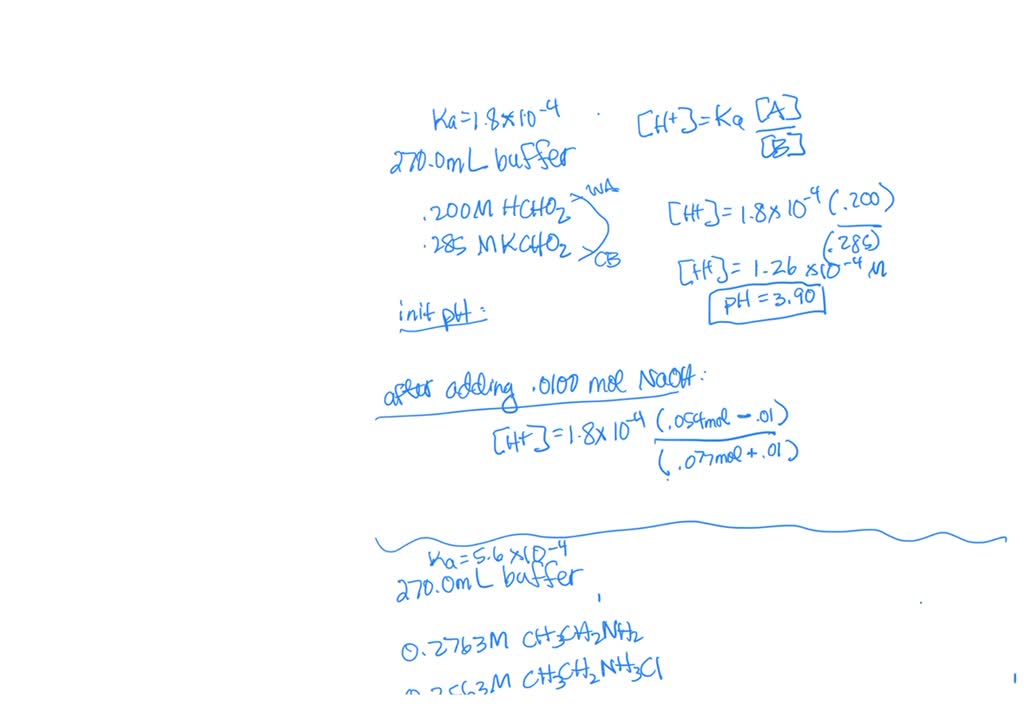 Ka=1.8×10⁻⁴
270.0mL buffer
.200M HCHO₂ > WA
.285 M KCHO₂ > CB
init pH:
[H⁺]=Ka [A]
[B]
[H+]=1.8×10⁻⁴ (.200)
(.285)
[H+]=1.26×10⁻⁴ M
pH=3.90
after adding .0100 mol NaOH:
[H+]=1.8×10⁻⁴ (.054mol − .01)
(.077mol + .01)
Ka=5.6×10⁻⁴
270.0mL buffer
0.2763M CH₃CH₂NH₂
CH₃CH₂NH₃Cl